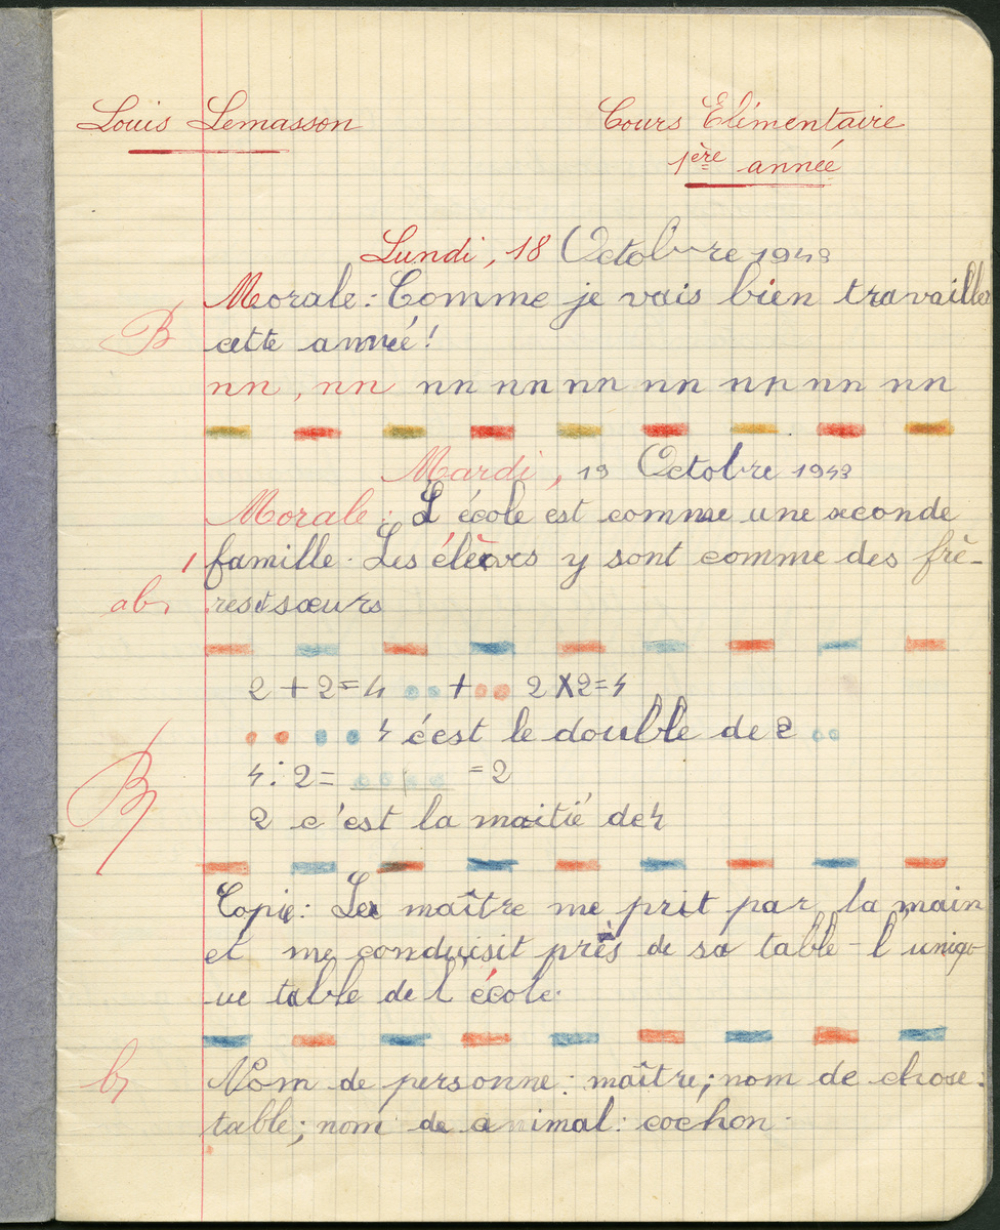 Louis Lemasson
Cours Elémentaire
1ère année
Lundi, 18 Octobre 1943
Morale: Comme je vais bien travailler
B cette année!
nn, nn nn nn nn nn nn nn nn
Mardi, 19 Octobre 1943
Morale: L école est comme une seconde
1 famille. Les élèves y sont comme des frè-
ab res et sœurs
2 + 2 = 4 + 2 X 2 = 4
4 c'est le double de 2
B 4 : 2 = = 2
2 c'est la moitié de 4
Copie: Le maître me prit par la main
et me conduisit près de sa table - l'uniq-
ue table de l'école.
b Nom de personne: maître; nom de chose:
table; nom de animal: cochon.